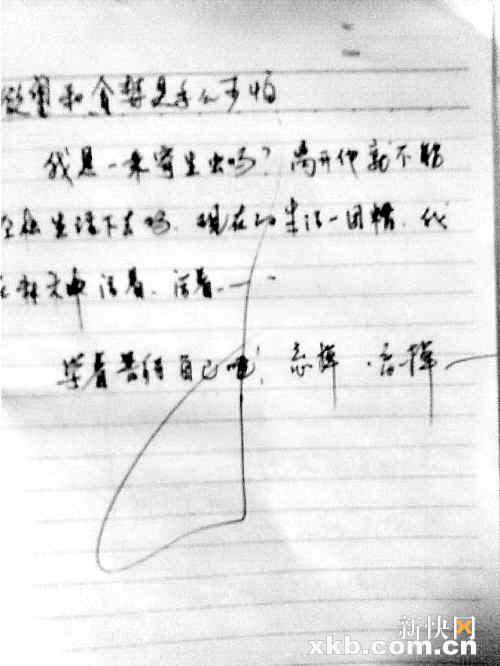 欲望和贪婪是多么可怕
我是一条寄生虫吗?离开他就不能
生活下去吗.现在的生活一团糟.我
活着.活着.一.
学着善待自己吧!忘掉.忘掉一
新快网
xkb.com.cn